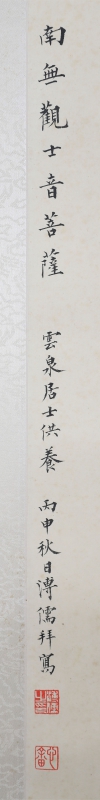 南無觀士音菩薩 雲泉居士供養 丙申秋日溥儒拜寫